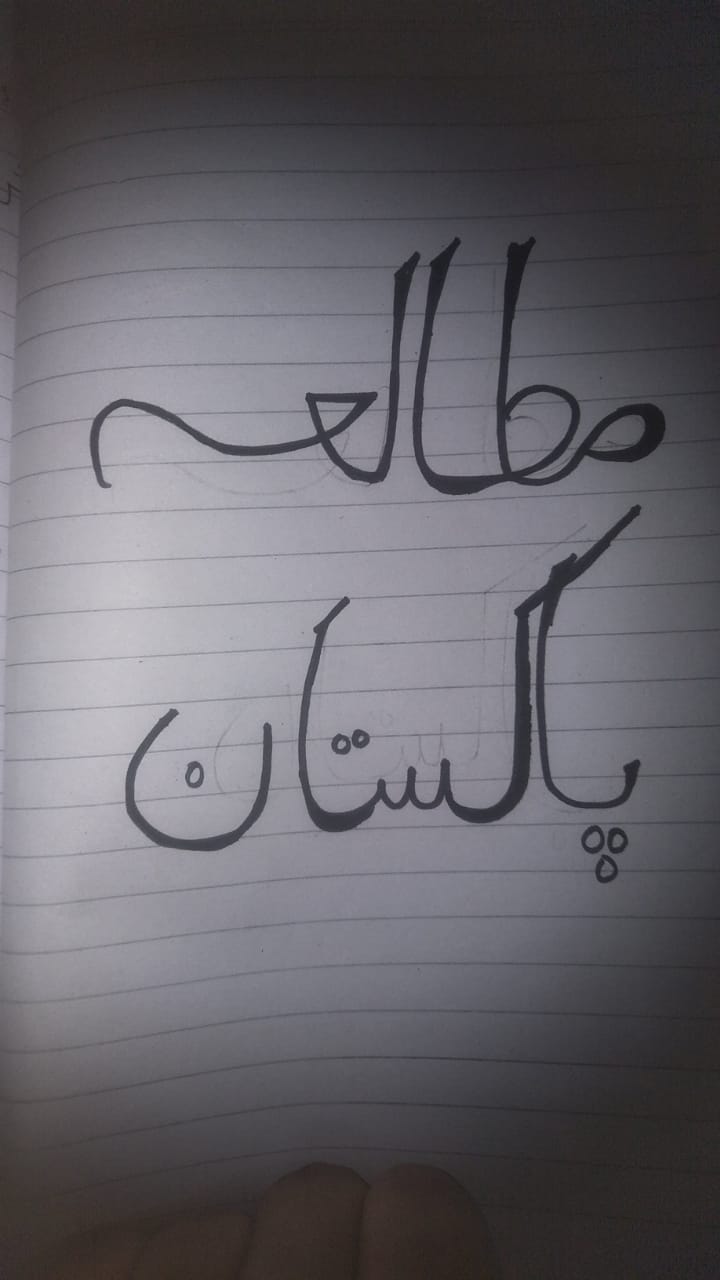 مطالعہ
پاکستان